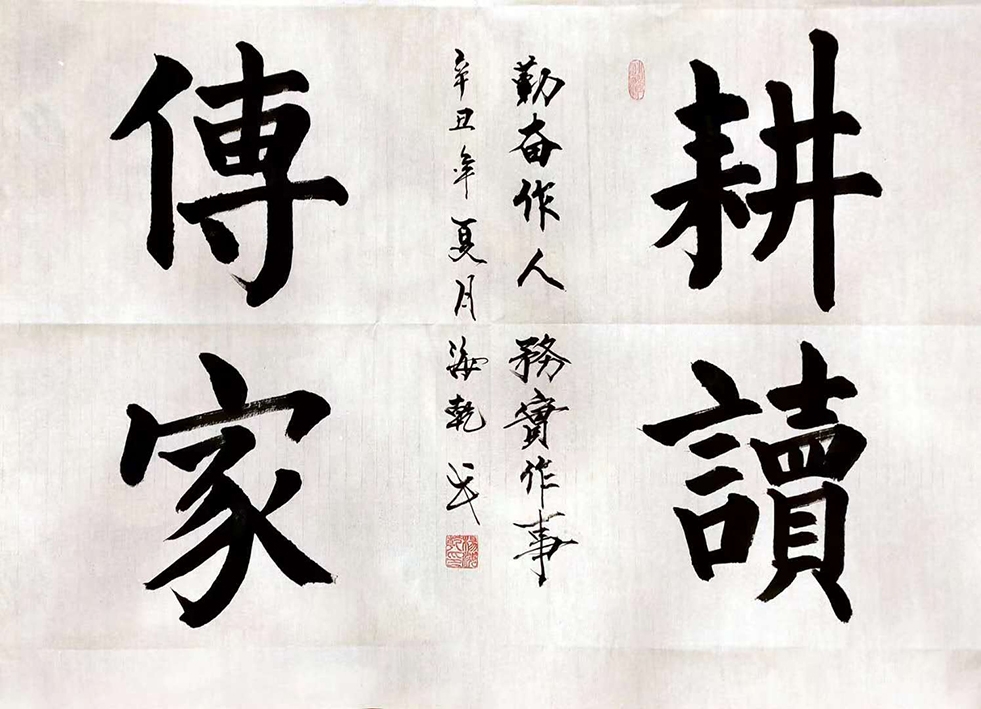 耕讀
傳家
勤奋作人務實作事
辛丑年夏月海乾書